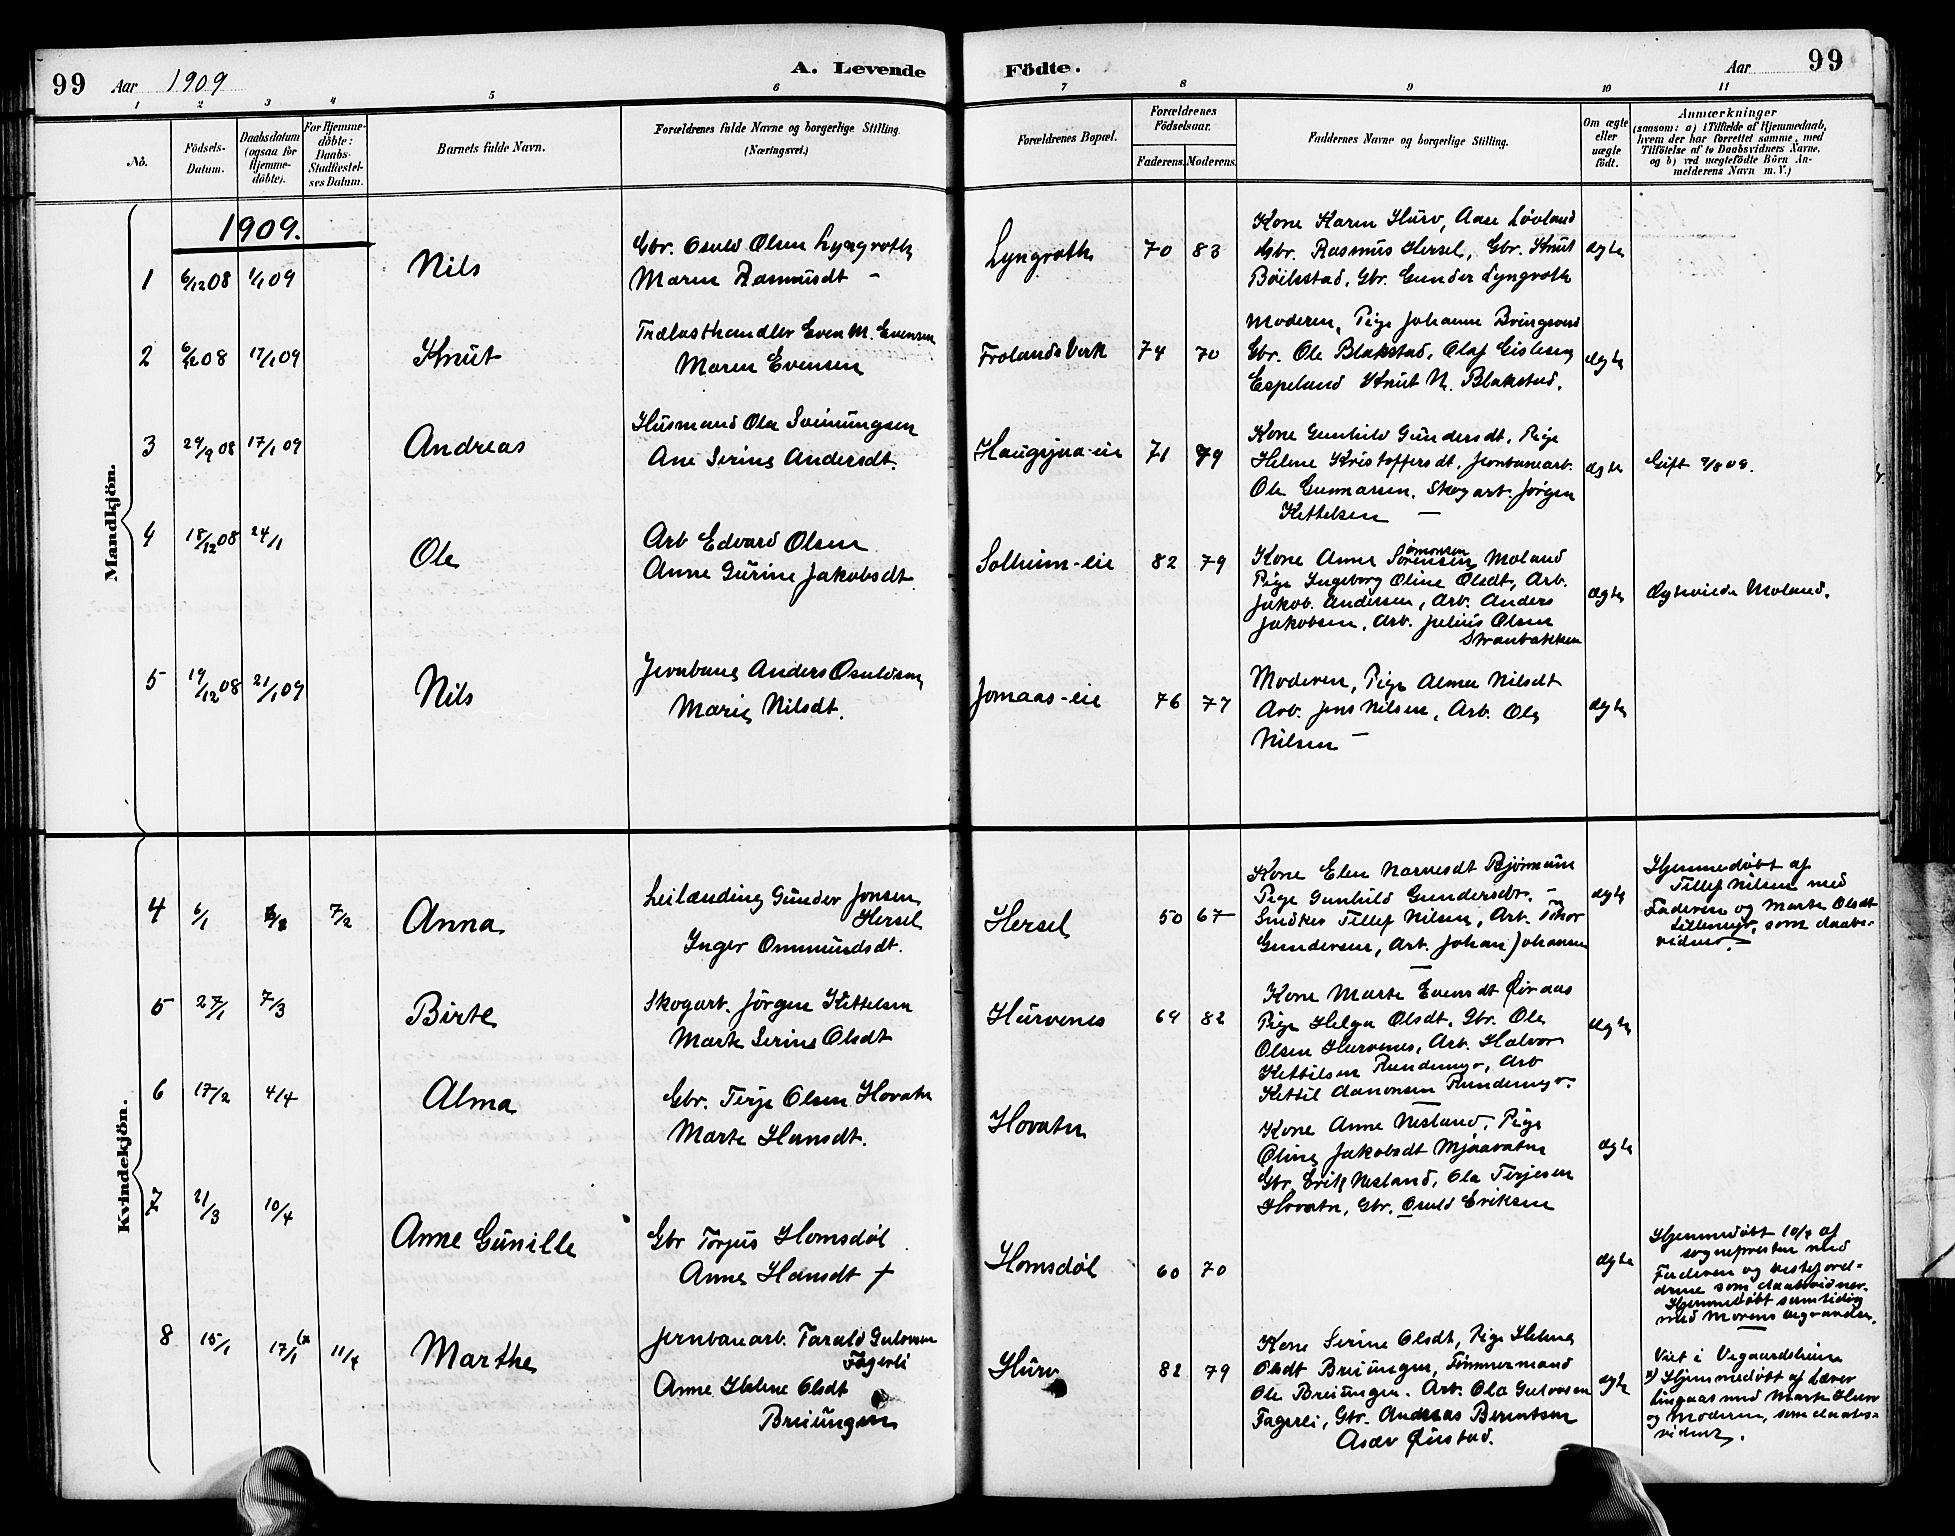 99 Aar 1909 A. Levende
1 2 3 4 5 6
No.
Födsels-
Datum.
Daabsdatum
(ogsaa for
Hjemme-
döbte).
For Hjemme-
döbte:
Daabs-
Stadfæstel-
ses Datum.
Barnets fulde Navn.
Forældrenes fulde Navne og borgerlige Stilling.
(Næringsvei.)
Födte. Aar 99
7 8 9 10 11
Forældrenes Bopæl.
Forældrenes
Födselsaar.
Faderens. Moderens.
Faddernes Navne og borgerlige Stilling.
Om ægte
eller
uægte
födt.
Anmærkninger
(saasom: a) i Tilfælde af Hjemmedaab,
hvem der har forrettet samme, med
Tilföielse af to Daabsvidners Navne,
og b) ved uægtefödte Börn An-
melderens Navn m. V.)
Mandkjön.
1909.
1 6/12 08 1/1 09 Nils
Gbr. Osuld Olsen Lyngroth
Maren Rasmusdt -
Lyngroth 70 83
Kone Karen Hurv, Aase Løvland
Gbr. Rasmus Hersel, Gbr. Knut
Bøilestad, Gbr. Gunder Lyngroth
ægte
2 08 17/1 09 Knut
Trælasthandler Even M. Evensen
Maren Evensen
Frolands Verk 74 70
Moderen, Pige Johanne Bringsvard
Gbr. Ole Blakstad, Olaf Gislesen
Espeland Knut N. Blakstad.
ægte
3 29/9 08 17/1 09 Andreas
Husmand Ola Sveinungsen
Ane Serine Andersdt.
Haugsjaa-eie 71 79
Kone Gunhild Gundersdt, Pige
Helene Kristoffersdt, Jernbanearb.
Ole Gunnarsen, Skogarb. Jørgen
Kittelsen —
ægte
Gift 9/8 09.
4 18/12 08 24/1 Ole
Arb Edvard Olsen
Anne Gurine Jakobsdt
Solheim-eie 82 79
Kone Anne Sørensen Moland
Pige Ingeborg Oline Olsdt, Arb.
Jakob Andersen, Arb. Anders
Jakobsen, Arb. Julius Olsen
Stranbakken
ægte
Ægteviede Moland.
5 19/12 08 21/1 09 Nils
Jernbane Anders Osuldsen
Marie Nilsdt.
Jomaas-eie 76 77
Moderen, Pige Alma Nilsdt
Arb. Jens Nilsen, Arb. Ole
Nilsen —
ægte
Kvindekjön.
4 6/1 7/2 Anna
Leilænding Gunder Jonsen
Hersel
Inger Ommundsdt.
Hersel 50 67
Kone Elen Narvesdt Bjørmein
Pige Gunhild Gundersdtr. -
Snedker Tillef Nilsen, Arb. Thor
Gundersen, Arb. Johan Johansen
ægte
Hjemmedøbt af
Tillef Nilsen med
Faderen og Marte Olsdt
Lillemyr, som daabs-
vidner.
5 27/1 7/3 Birte
Skogarb. Jörgen Kittelsen
Marte Serine Olsdt
Hurvenes 69 82
Kone Marte Evensdt Øiraas
Pige Helga Olsdt, Gbr. Ole
Olsen Hurvenes, Arb. Halvor
Kittilsen Rundemyr, Arb
Kittil Aanonsen Rundemyr.
ægte
6 17/2 4/4 Alma
Gbr. Terje Olsen Hovatn
Marte Hansdt.
Hovatn
Kone Anne Nesland, Pige
Oline Jakobsdt Mjaavatn
Gbr. Erik Nesland, Ole Terjesen
Hovatn, Gbr. Osuld Eriksen
ægte
7 21/3 10/4 Anne Gunille
Gbr Torjus Homsdøl
Anne Hansdt +
Homsdøl 60 70
ægte
Hjemmedøbt 10/4 af
sognepresten med
Faderen og besteforæl-
drene som daabsvidner.
Hjemmedøbt samtidig
med Morens begravelse.
8 15/1 17/1 11/4 Marthe
Jernbanearb. Tarald Gulovsen
Fagerli
Anne Helene Olsdt
Breiungen
Hurv 82 79
Kone Serine Olsdt, Pige Helene
Olsdt Breiungen, Tømmermand
Ole Breiungen. Arb. Ola Gulovsen
Fagerli, Gbr. Andreas Berentsen
Asdøv Øinstad.
ægte
Viet i Vegaardsheien
x) Hjemmedøbt af Lærer
Lingaas med Marte Hurv
og Moderen, som daabs-
vidner.